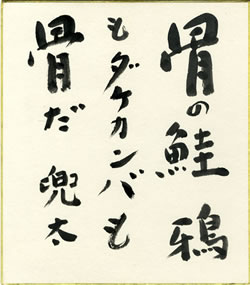 骨の鮭鴉
もダケカンバも
骨だ 兜太